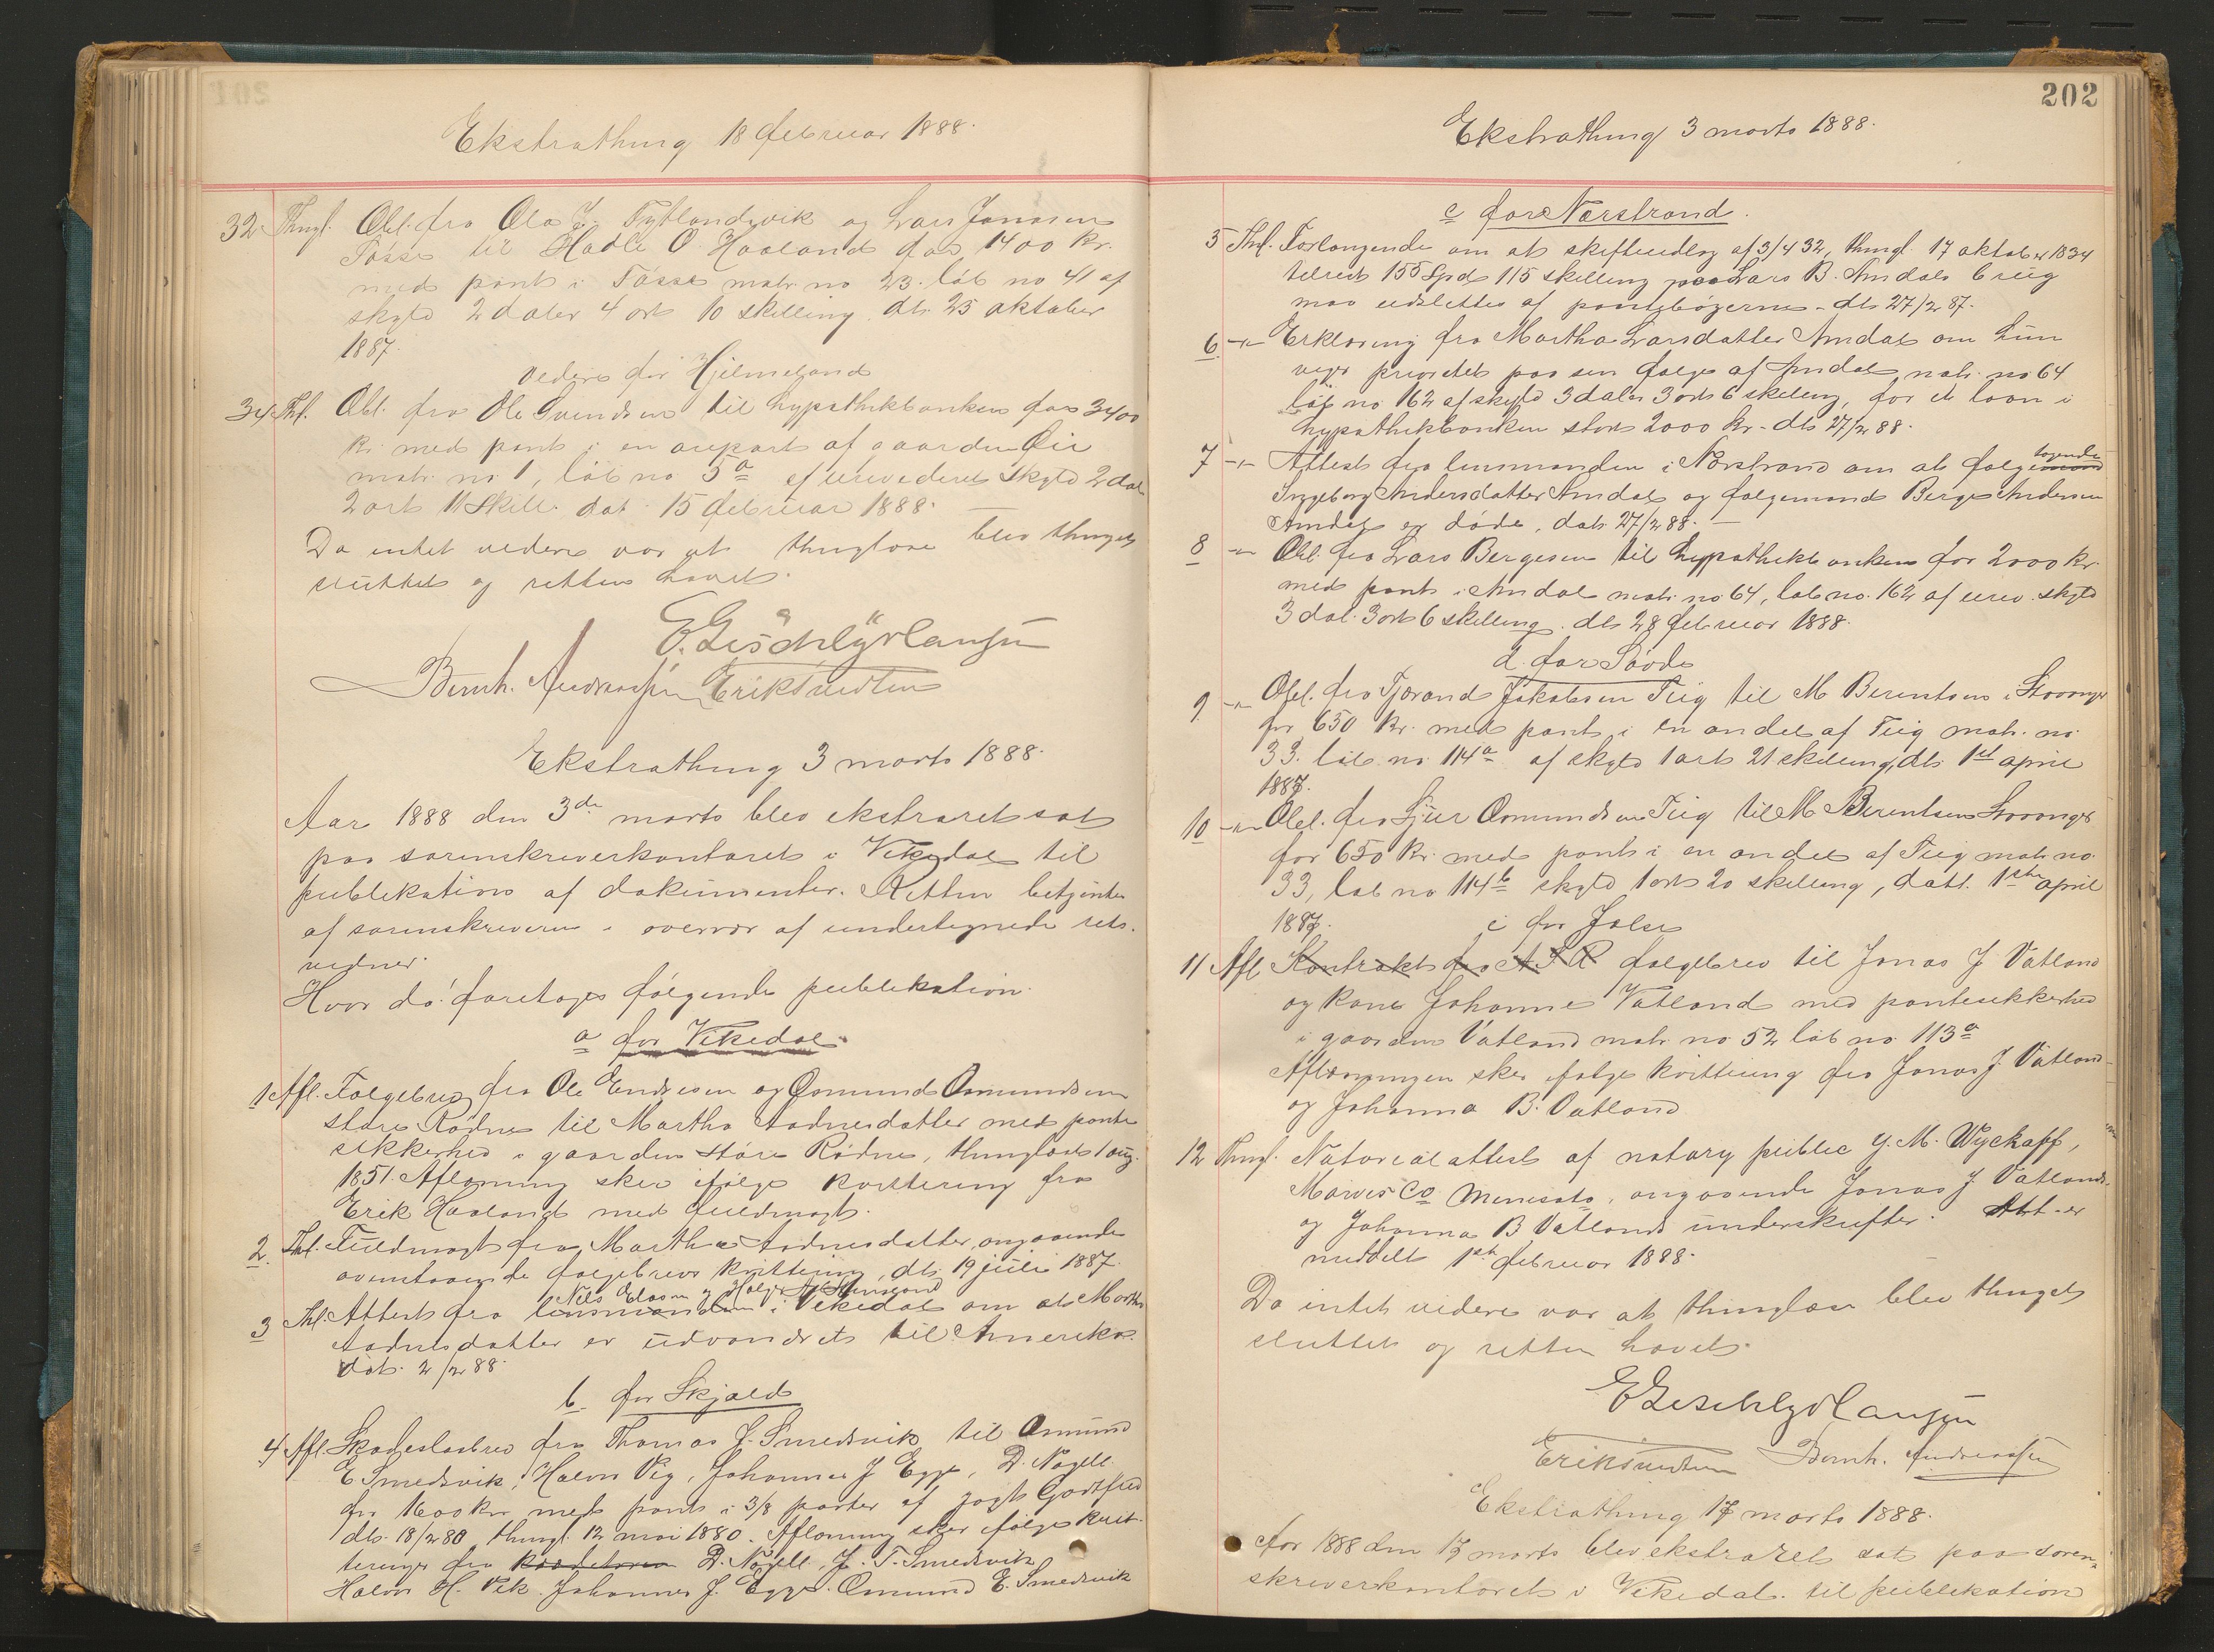 Ekstrathing 18 februar 1888.
32 Thngl. Obl. fra Ola J. Tytlandsvik og Lars Jonasen
Fösse til Hadle O. Haaland for 1400 kr.
med pant i Fosse matr no 23. löb no 41 af
skyld 2 daler 4 ort 10 skilling dt. 25 oktober
1887.
videre for Hjelmeland
34 Thl. Obl. fra Ole Svendsen til hypothekbanken for 3400
kr. med pant i en anpart af gaarden
matr. no 1, löb no 5a af urevideret skyld 2 dal
2 ort 11 skill. dat. 15 februar 1888.
Da intet videre var at thinglæse blev thinget
sluttet og retten hævet.
Bernh. Andreassen Erik Knudsen
Ekstrathing 3 marts 1888.
Aar 1888 den 3de marts blev ekstraret sat
paa sorenskriverkontoret i Vikedal til
publikation af dokumenter. Retten betjentes
af sorenskriveren i overvær af undertegnede rets-
vidner.
Hvor da foretoges følgende publikation.
a for Vikedal.
1 Afl. Folgebrev fra Ole Endresen og Osmund Osmundsen
store Rödne til Martha Aadnesdatter med pante
sikkerhed i gaarden störe Rödne, thinglæst 1 aug.
1851. Aflæsning sker ifølge kvittering fra
Erik Haaland med fuldmagt.
2. Thl. Fuldmagt fra Martha Aadnesdatter, angaaende
ovenstaaende folgebrevs kvittering, dt. 19 juli 1887.
Nils Olason og Holger
3 Thl. Attest fra lensmanden i Vikedal om at Martha
Aadnesdatter er udvandret til Amerika.
dat. 2/2 88.
b. for Skjold
4 Afl. Skadeslösbrev fra Thomas J. Smedsvik til Osmund
E Smedsvik, Halvor Vig, Johannes J Egge, D. Nagell
for 1600 kr. med pant i 3/8 parter af jagt Godtfred
dt. 18/2 80, thingl. 12 mai 1880. Aflæsning sker ifølge kvit-
teringer fra D. Nagell, J. T. Smedsvik
Halvor H. Vik. Johannes J. Egge. Osmund E. Smedsvik
202
Ekstrathing 3 marts 1888.
c for Nærstrand.
5 Thl. Forlangende om at skifteudlæg af 3/4 32, thingl. 17 oktober 1834
tilrest 155 Spd 115 skilling paa Lars B. Amdals brug
maa udslettes af pantebøgerne. dt. 27/2 87.
6 -"- Erklæring fra Martha Larsdatter Amdal om hun
viger prioritet paa sin folge af Amdal matr. no 64
löb no 162 af skyld 3 daler 3 ort 6 skilling, for et laan i
hypothekbanken stort 2000 kr. dt. 27/2 88.
tagende
7 -"- Attest fra lensmanden i Nærstrand om at folgemand
Ingeborg Andersdatter Amdal og folgemand Berge Andersen
Amdal er döde, dat. 27/2 88.
8 -"- Obl. fra Lars Bergesen til hypothekbanken for 2000 kr.
med pant i Amdal matr. no 64, löb no. 162 af urev. skyld
3 dal. 3 ort 6 skilling. dt. 28 februar 1888.
d. for Sövde
9 -"- Obl. fra Tjerand Jakobsen Tveg til M Berentsen i Stavanger
for 650 kr. med pant i en andel af Tveg matr. no.
33. löb. no 114a af skyld 1 ort 21 skilling, dt. 1st april
1887.
10 -"- Obl. fra Sjur Osmundsen Tveg til M Berentsen Stavanger
for 650 kr. med pant i en andel af Tveg matr. no.
33, löb no 114b skyld 1 ort 20 skilling, dat. 1ste april
1887.
e for Jelse
11 Afl Kontrakt fra A S R folgebrev til Jonas J Vatland
og kone Johanne Vatland med pantesikkerhed
i gaarden Vatland matr no 52 löb no 113a
Aflæsningen sker ifølge kvittering fra Jonas J Vatland
og Johanna B. Vatland
12 Thngl. Notarialattest af notary public G. M. Wyckoff,
Mower Co Minesota, angaaende Jonas J Vatlands
og Johanna B Vatlands underskrifter. Att. er
meddelt 1st februar 1888.
Da intet videre var at thinglæse blev thinget
sluttet og retten hævet.
Erik Knudsen Bernh. Andreassen
Ekstrathing 17 marts 1888.
Aar 1888 den 17 marts blev ekstraret sat paa soren-
skriverkontoret i Vikedal til publikation